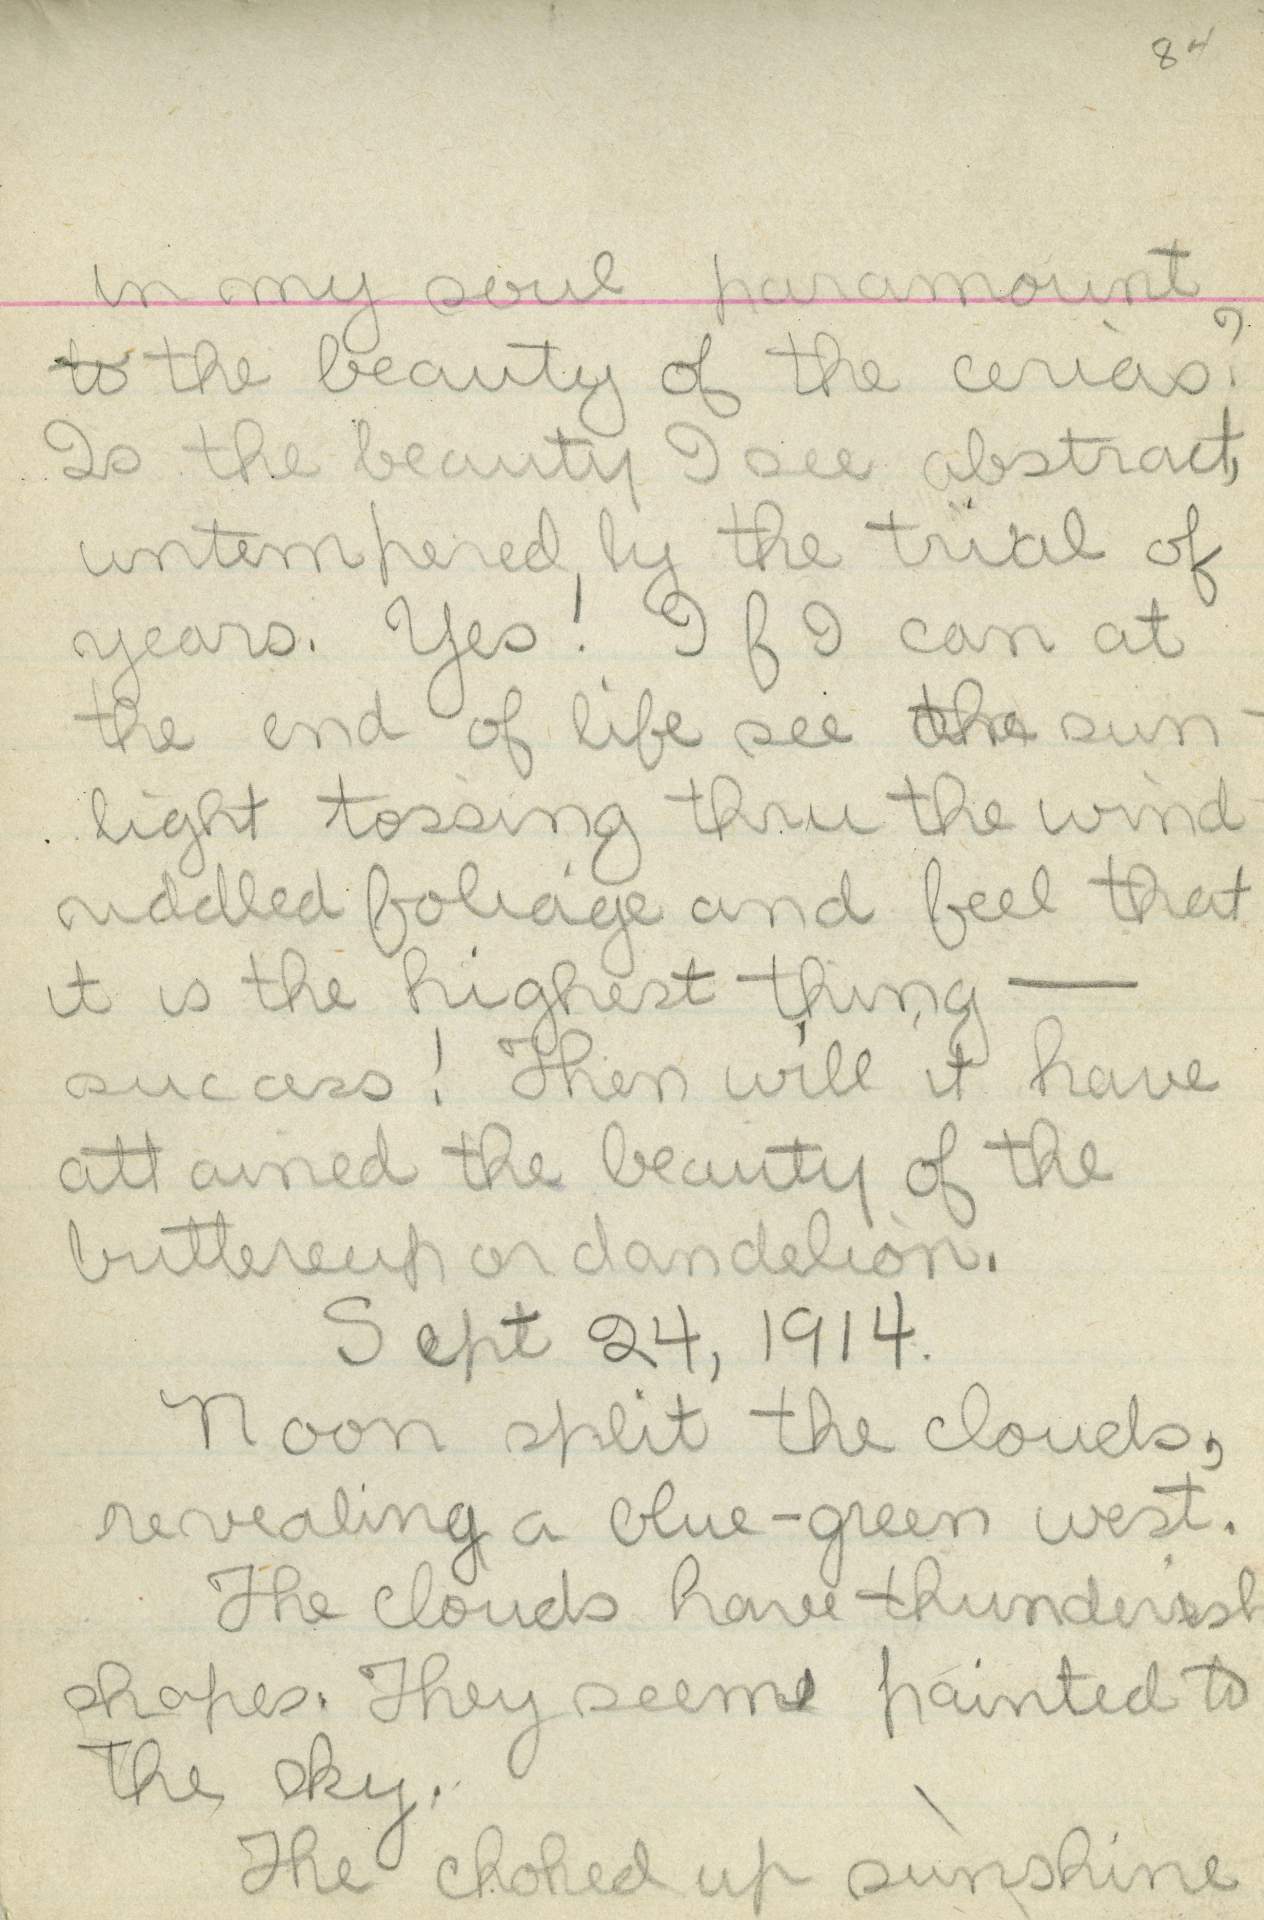 84
in my soul paramount
to the beauty of the cerias?
Is the beauty I see abstract,
untempered, by the trial of
years. Yes! If I can at
the end of life see the sun-
light tossing thru the wind-
riddled foliage and feel that
it is the highest thing —
success! Then will it have
attained the beauty of the
buttercup or dandelion.
Sept 24, 1914.
Noon split the clouds,
revealing a blue-green west.
The clouds have thunderish
shapes. They seem painted to
the sky.
The choked up sunshine